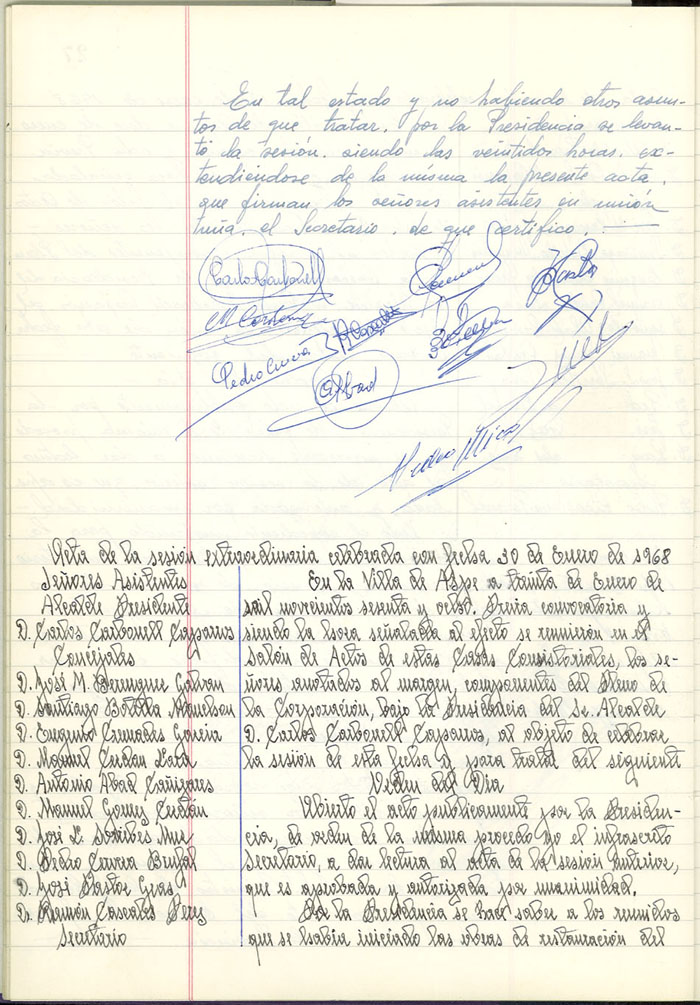 En tal estado y no habiendo otros asun-
tos de que tratar, por la Presidencia se levan-
tó la sesión, siendo las veintidos horas, ex-
tendiendose de la misma la presente acta,
que firman los señores asistentes en unión
el Secretario, de que certifico.
Carlos Carbonell
Pedro Cervera
A Abad
Acta de la sesión extraordinaria celebrada con fecha 30 de Enero de 1968
Señores Asistentes
Alcalde Presidente
D. Carlos Carbonell Caparros
Concejales
D. José M. Berenguer Galvan
D. Santiago Botella
D. Eugenio Cremades Garcia
D. Manuel Cerdan Lara
D. Antonio Abad Cañizares
D. Manuel Gomez Cerdán
D. José L. Soribes Mur
D. Pedro Cervera Brufal
D. José Pastor Gras
D. Ramón Cascales Perez
Secretario
En la Villa de Aspe a treinta de Enero de
mil novecientos sesenta y ocho. Previa convocatoria y
siendo la hora señalada al efecto se reunieron en el
salón de Actos de estas Casas Consistoriales, los se-
ñores anotados al margen, componentes del Pleno de
la Corporación, bajo la Presidencia del Sr. Alcalde
D. Carlos Carbonell Caparros, al objeto de celebrar
la sesión de esta fecha y para tratar del siguiente
Orden del Dia
Abierto el acto publicamente por la Presiden-
cia, de orden de la misma procedo yo el infrascrito
Secretario, a dar lectura al acta de la sesión anterior,
que es aprobada y autorizada por unanimidad.
Por la Presidencia se hace saber a los reunidos
que se habia iniciado las obras de restauración del